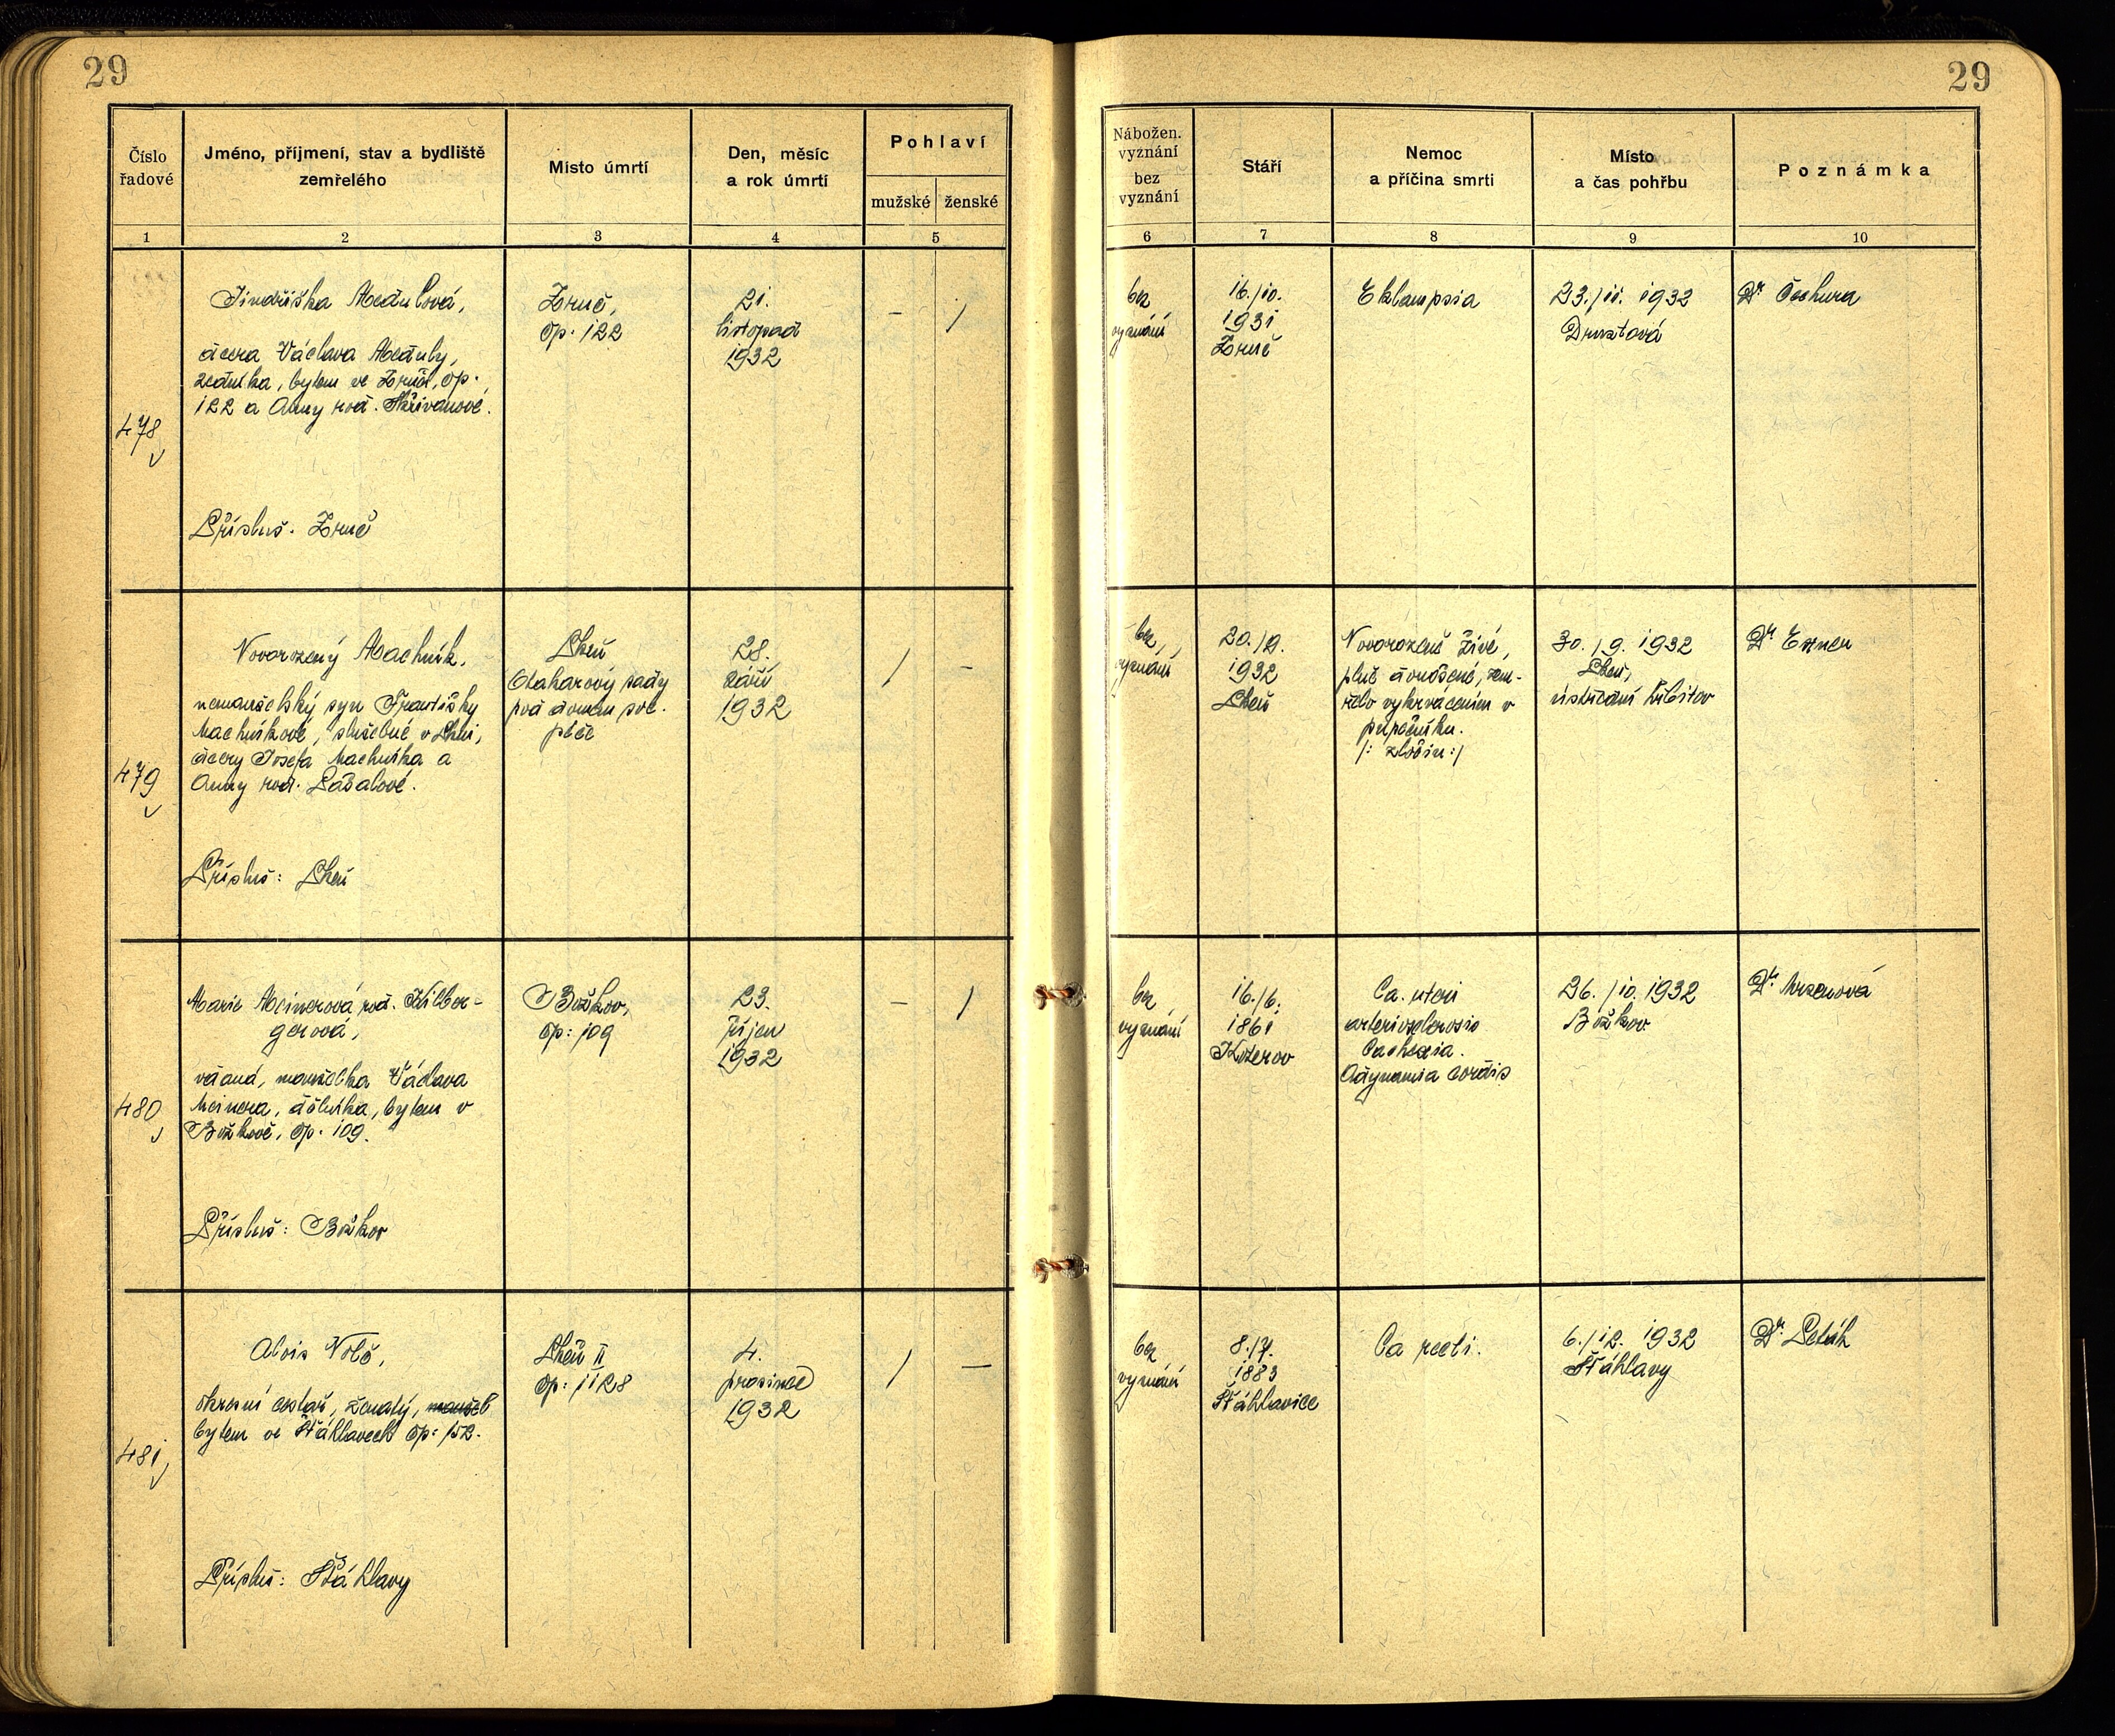 29
29
Číslo
řadové
Jméno, příjmení, stav a bydliště
zemřelého
Místo úmrtí
Den, měsíc
a rok úmrtí
Pohlaví
mužské
ženské
Nábožen.
vyznání
bez
vyznání
Stáří
Nemoc
a příčina smrti
Místo
a čas pohřbu
Poznámka
1
2
3
4
5
6
7
8
9
10
478
Jindřiška
dcera Václava
zedníka, bytem ve Zruči, čp.
122 a Anny roz. Skřivanové.
Přísluš. Zruč
Zruč,
čp. 122
21.
listopad
1932
– /
bez
vyznání
16./10.
1931
Zruč
Eklampsia
23./11. 1932
Druztová
Dr. Čechura
479
Novorozený Machník,
nemanželský syn Františky
Machníkové, služebné v Plzni,
dcery Josefa Machníka a
Anny roz.
Přísluš: Plzeň
Plzeň
Otakarovy sady
pod domem soc.
péče
28.
září
1932
/ –
bez
vyznání
20./9.
1932
Plzeň
Novorozeně živé,
plně donošené, zem-
řelo vykrvácením v
pupečníku.
/: zločin :/
30./9. 1932
Plzeň,
ústřední hřbitov
Dr. Exner
480
Marie Meinerová roz. Hilber-
gerová,
vdaná, manželka Václava
Meinera, dělníka, bytem v
Božkově, čp. 109.
Přísluš: Božkov
Božkov,
čp: 109
23.
říjen
1932
– /
bez
vyznání
16./6.
1861
Koterov
Ca. uteri
arteriosclerosis
Cachexia.
Adynamia cordis
26./10. 1932
Božkov
Dr. Mrzenová
481
Alois Volč,
okresní cestář, ženatý,
bytem ve Šťáhlavech čp: 152.
Přísluš: Šťáhlavy
Plzeň II
čp: 1128
4.
prosinec
1932
/ –
bez
vyznání
8./7.
1883
Šťáhlavice
Ca recti.
6./12. 1932
Šťáhlavy
Dr. Peták